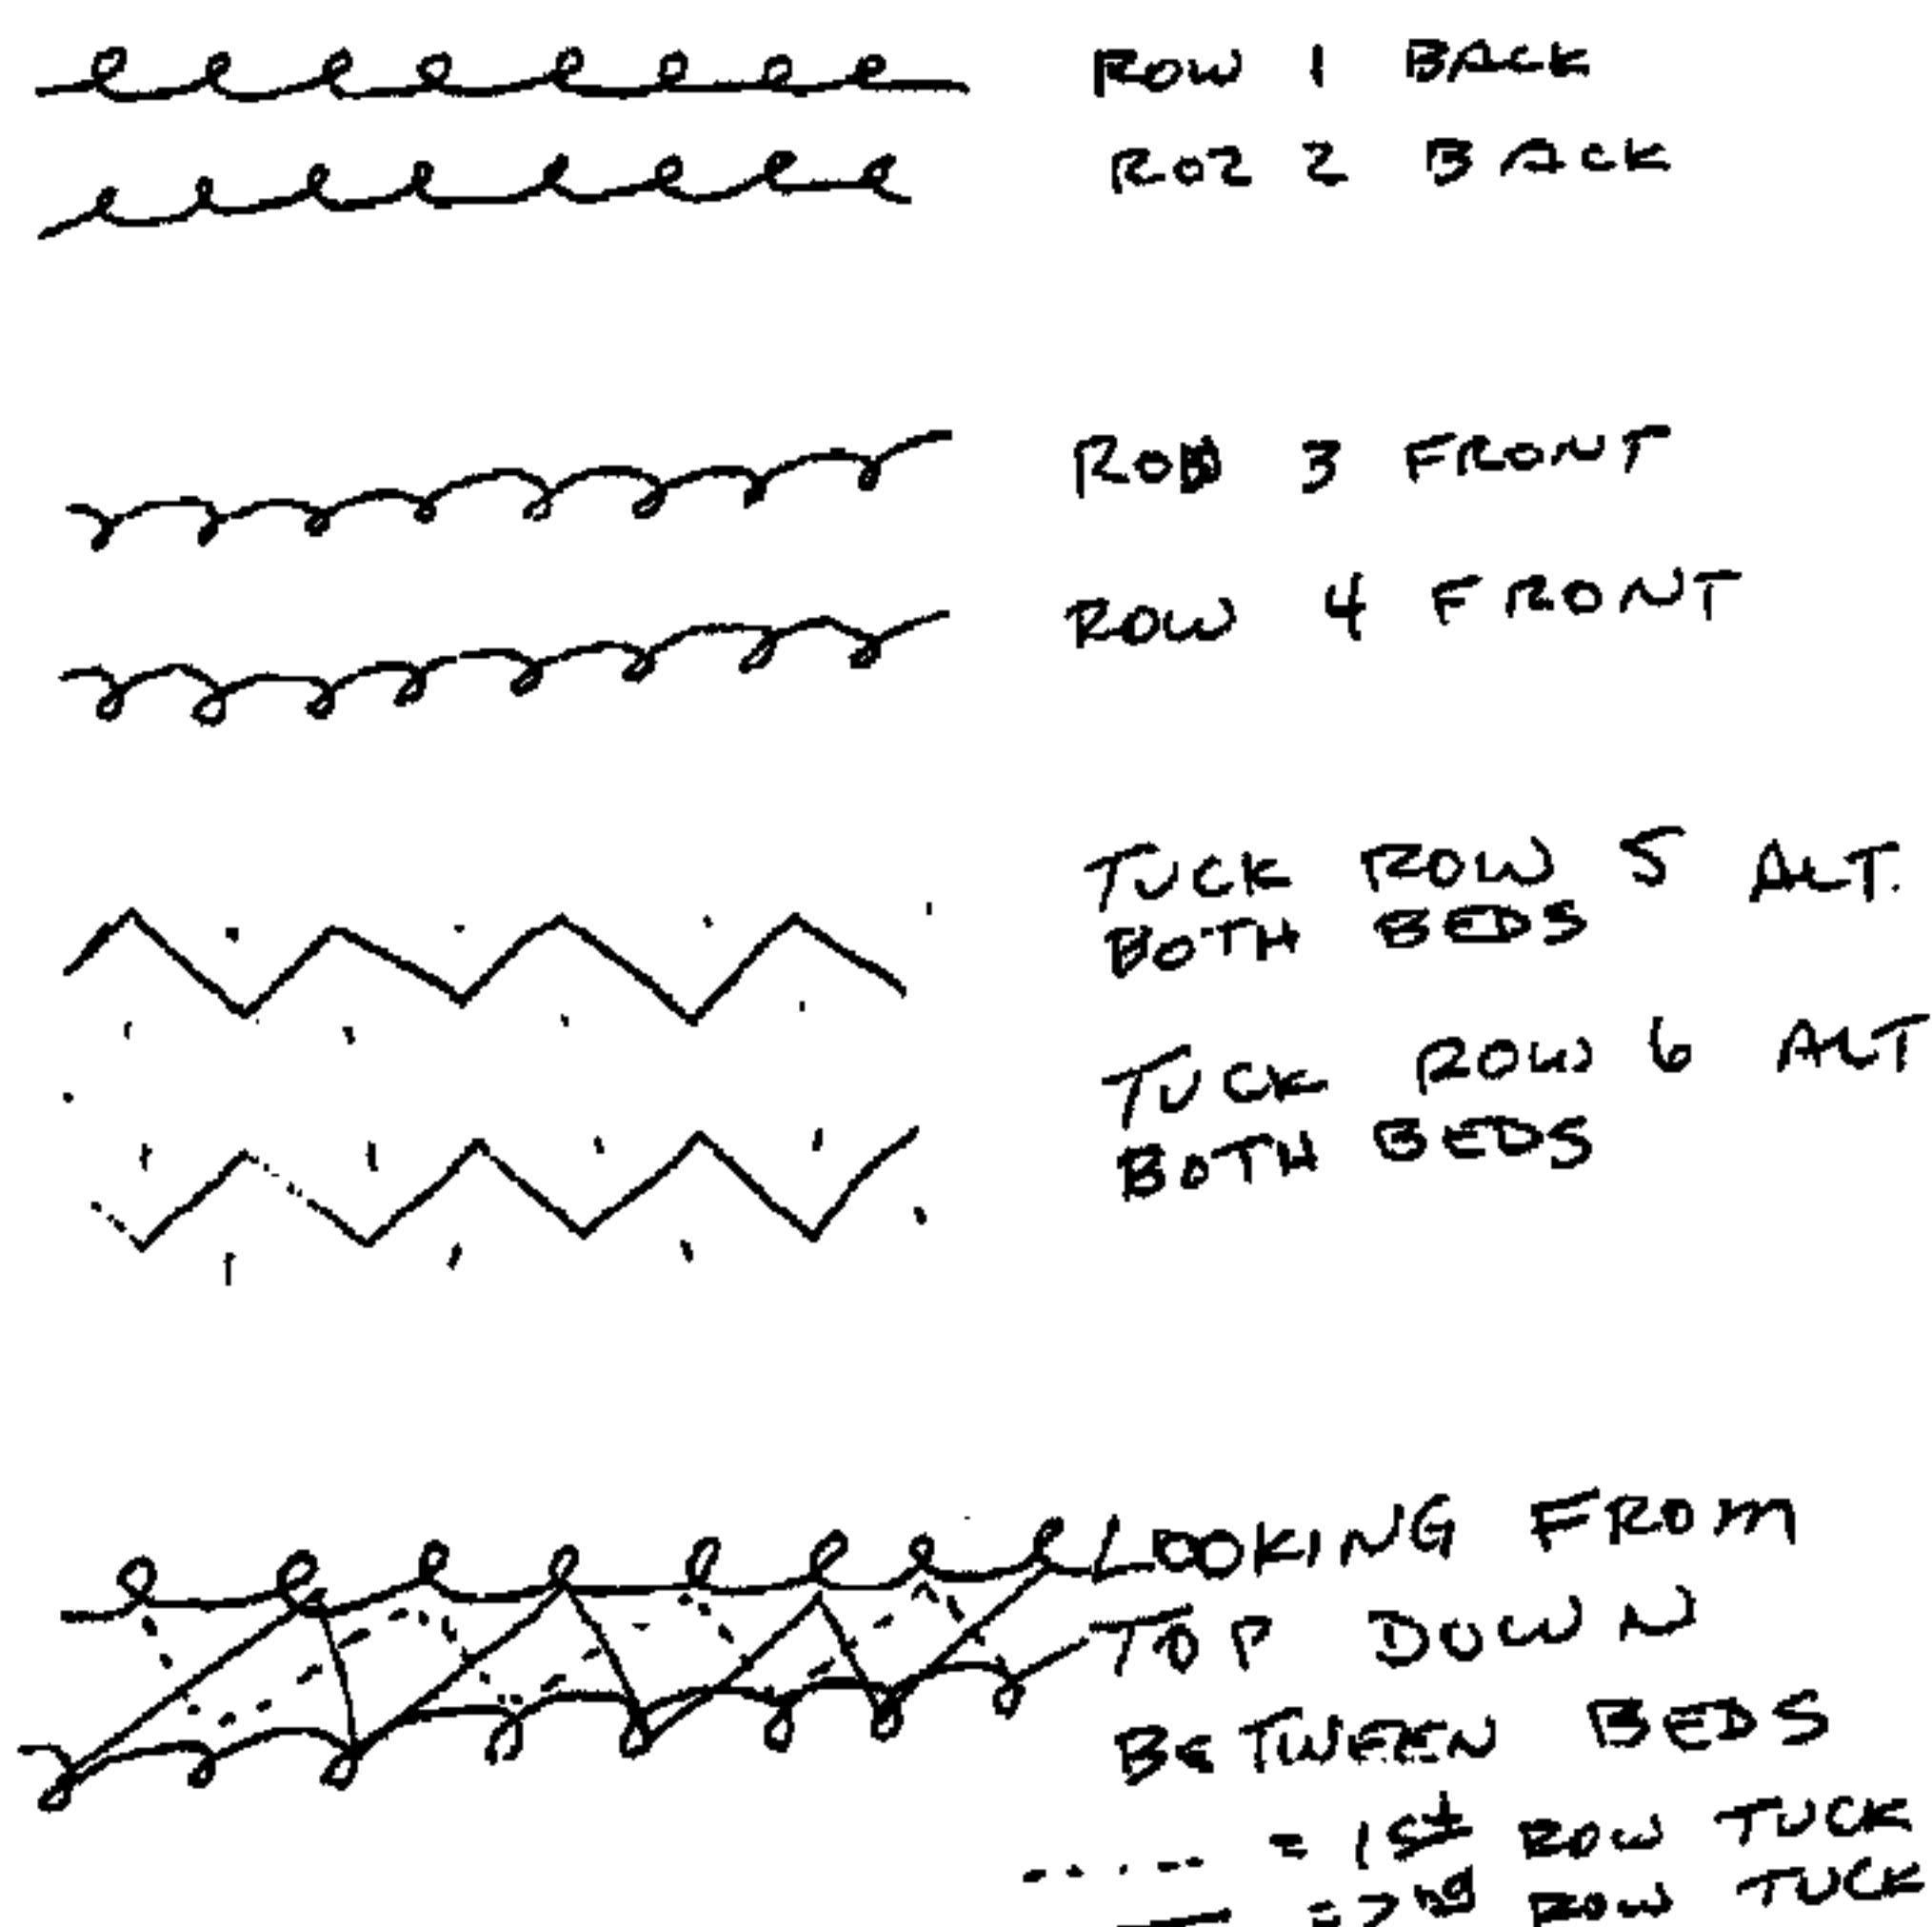 ROW 1 BACK
RO2 2 BACK
ROB 3 FRONT
ROW 4 FRONT
TUCK ROW 5 ALT.
BOTH BEDS
TUCK ROW 6 ALT
BOTH BEDS
LOOKING FROM
TOP DOWN
BETWEEN BEDS
= 1st ROW TUCK
= 2nd ROW TUCK